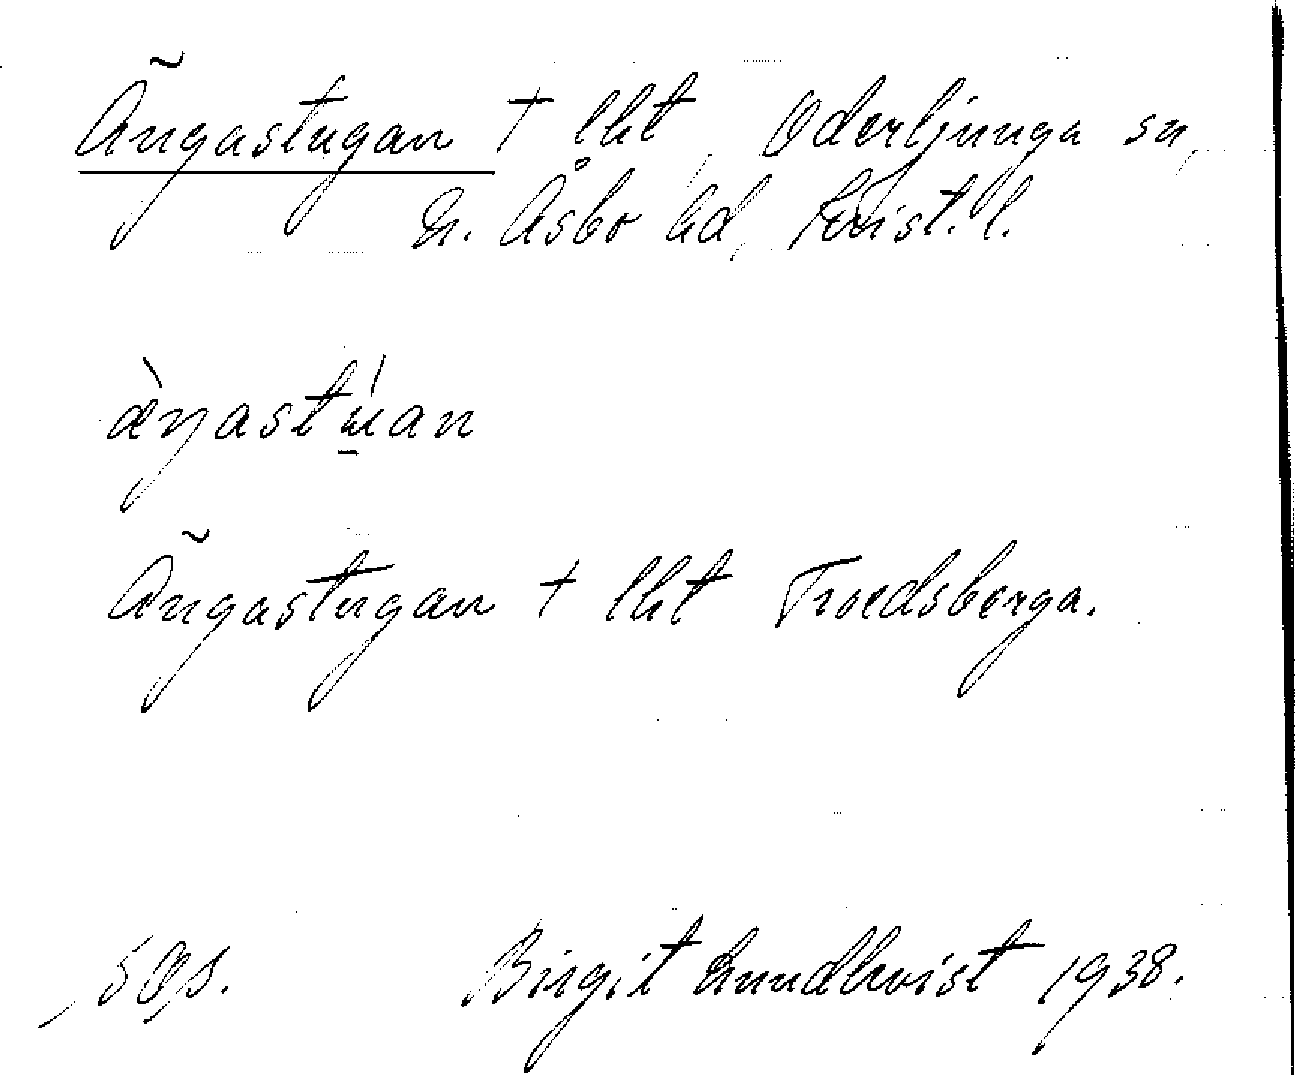 Ängastugan † lht, Oderljunga sn,
N. Åsbo hd, Krist. l.
æ̀ŋastúan
Ängastugan † lht Troedsberga.
Birgit Lundkvist 1938.